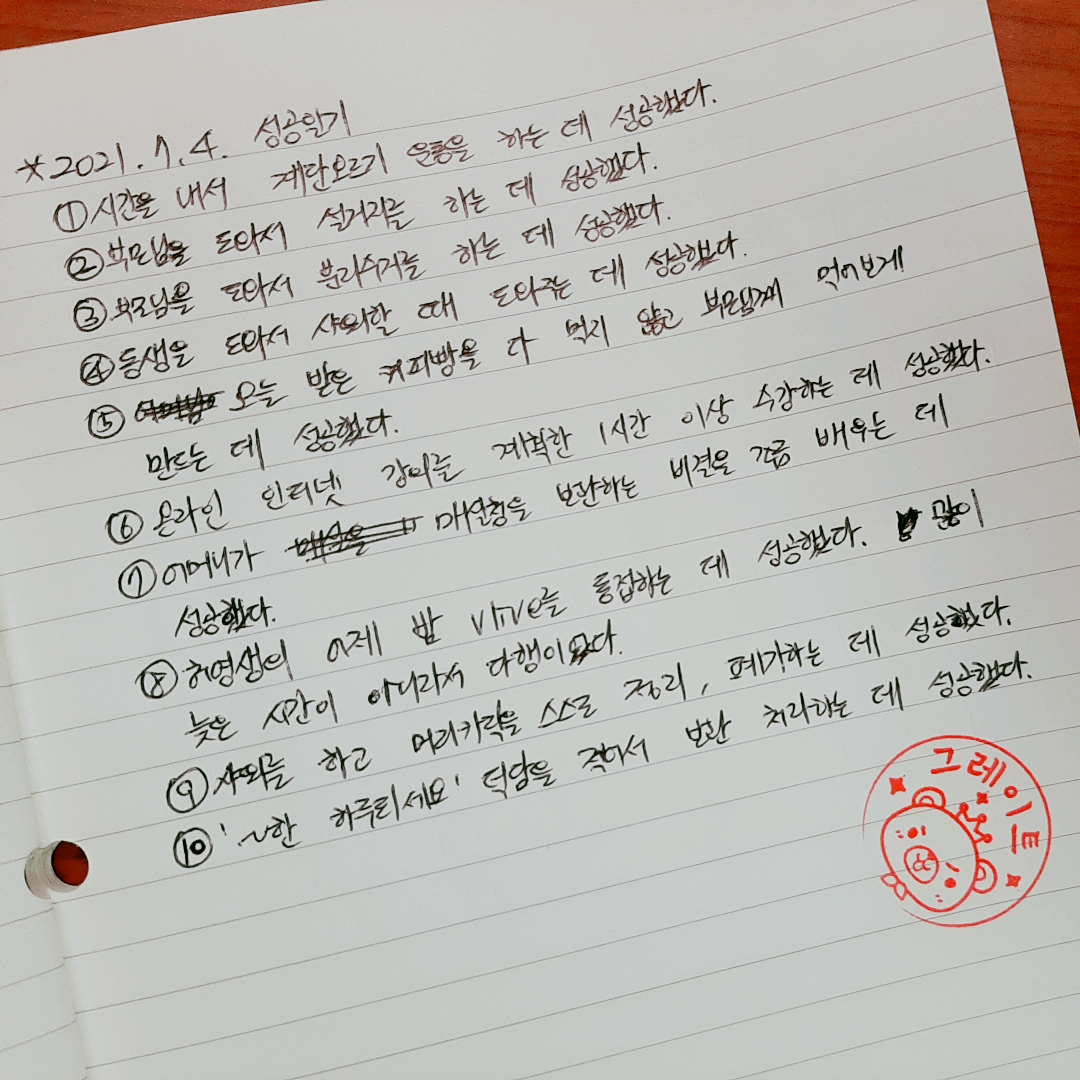 *2021. 7. 4. 성공일기
① 시간을 내서 계단오르기 운동을 하는 데 성공했다.
② 부모님을 도와서 설거지를 하는 데 성공했다.
③ 부모님을 도와서 분리수거를 하는 데 성공했다.
④ 동생을 도와서 샤워할 때 도와주는 데 성공했다.
⑤ 오늘 받은 커피빵을 다 먹지 않고 부모님께 먹어보게
만드는 데 성공했다.
⑥ 온라인 인터넷 강의를 계획한 1시간 이상 수강하는 데 성공했다.
⑦ 어머니가 매실청을 보관하는 비결을 겨우 배우는 데
성공했다.
⑧ 허영생의 어제 밤 vlive를 통접하는 데 성공했다. 많이
늦은 시간이 아니라서 다행이었다.
⑨ 샤워를 하고 머리카락을 스스로 정리, 폐기하는 데 성공했다.
⑩ '~한 하루되세요' 덕담을 적어서 보관 처리하는 데 성공했다.
그레이트